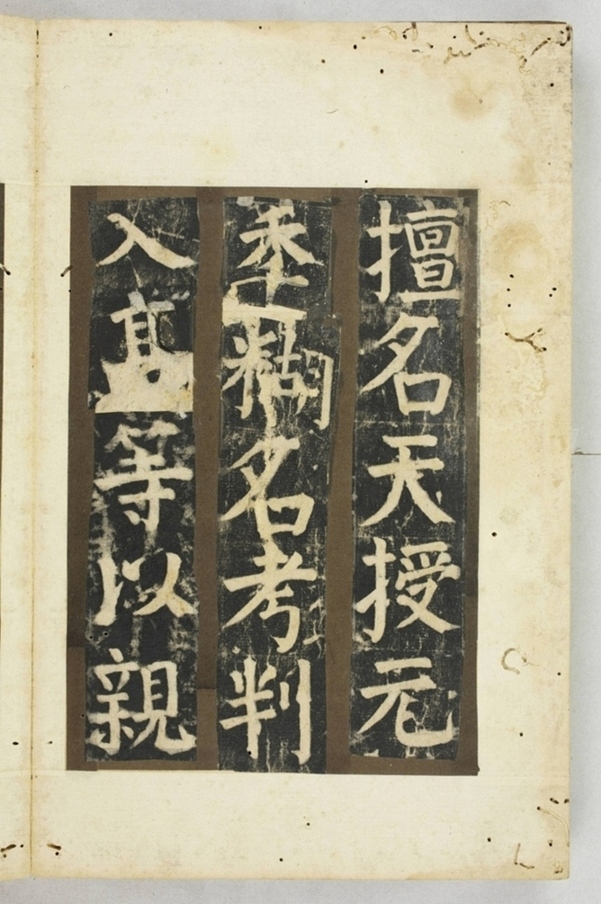 擅名天授元
秊糊名考判
入高等以親